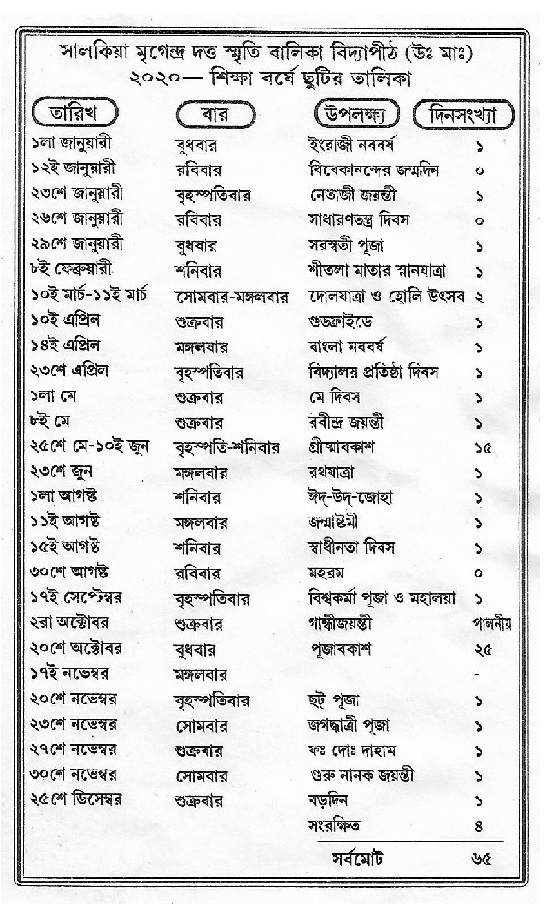 সালকিয়া মৃগেন্দ্র দত্ত স্মৃতি বালিকা বিদ্যাপীঠ (উঃ মাঃ)
২০২০— শিক্ষা বর্ষে ছুটির তালিকা
তারিখ বার উপলক্ষ্য দিনসংখ্যা
১লা জানুয়ারী বুধবার ইংরাজী নববর্ষ ১
১২ই জানুয়ারী রবিবার বিবেকানন্দের জন্মদিন ০
২৩শে জানুয়ারী বৃহস্পতিবার নেতাজী জয়ন্তী ১
২৬শে জানুয়ারী রবিবার সাধারণতন্ত্র দিবস ০
২৯শে জানুয়ারী বুধবার সরস্বতী পূজা ১
৮ই ফেব্রুয়ারী শনিবার শীতলা মাতার স্নানযাত্রা ১
১০ই মার্চ-১১ই মার্চ সোমবার-মঙ্গলবার দোলযাত্রা ও হোলি উৎসব ২
১০ই এপ্রিল শুক্রবার গুডফ্রাইডে ১
১৪ই এপ্রিল মঙ্গলবার বাংলা নববর্ষ ১
২৩শে এপ্রিল বৃহস্পতিবার বিদ্যালয় প্রতিষ্ঠা দিবস ১
১লা মে শুক্রবার মে দিবস ১
৮ই মে শুক্রবার রবীন্দ্র জয়ন্তী ১
২৫শে মে-১০ই জুন বৃহস্পতি-শনিবার গ্রীষ্মাবকাশ ১৫
২৩শে জুন মঙ্গলবার রথযাত্রা ১
১লা আগষ্ট শনিবার ঈদ্-উদ্-জোহা ১
১১ই আগষ্ট মঙ্গলবার জন্মাষ্টমী ১
১৫ই আগষ্ট শনিবার স্বাধীনতা দিবস ১
৩০শে আগষ্ট রবিবার মহরম ০
১৭ই সেপ্টেম্বর বৃহস্পতিবার বিশ্বকর্মা পূজা ও মহালয়া ১
২রা অক্টোবর শুক্রবার গান্ধীজয়ন্তী পালনীয়
২০শে অক্টোবর বুধবার পূজাবকাশ ২৫
১৭ই নভেম্বর মঙ্গলবার -
২০শে নভেম্বর বৃহস্পতিবার ছট্ পূজা ১
২৩শে নভেম্বর সোমবার জগদ্ধাত্রী পূজা ১
২৭শে নভেম্বর শুক্রবার ফঃ দোঃ দাহাম ১
৩০শে নভেম্বর সোমবার গুরু নানক জয়ন্তী ১
২৫শে ডিসেম্বর শুক্রবার বড়দিন ১
সংরক্ষিত ৪
সর্বমোট ৬৫